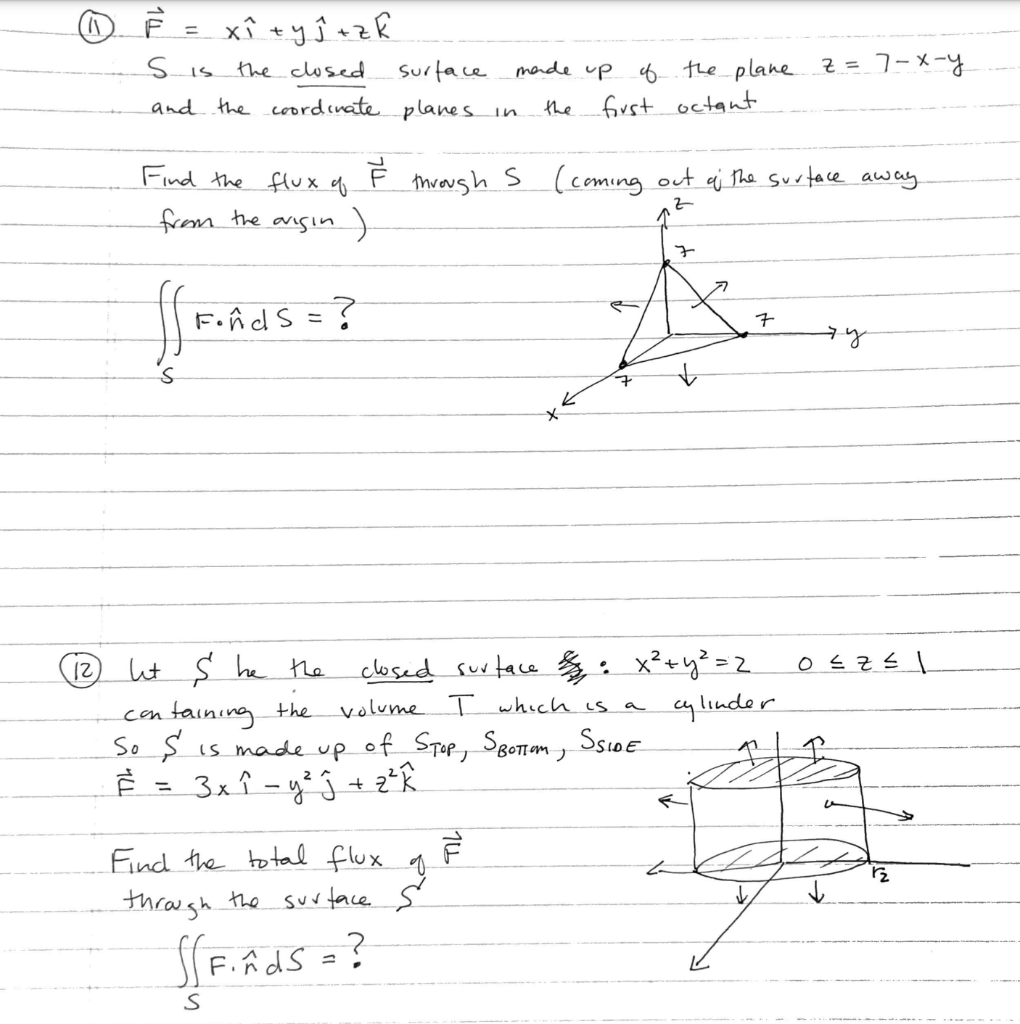 ⑪ F⃗ = xî + yĵ + zk̂
S is the closed surface made up of the plane z = 7-x-y
and the coordinate planes in the first octant
Find the flux of F⃗ through S (coming out of the surface away
from the origin)
z
7
∬ F·n̂ dS = ?
S
7
y
7
x
⑫ let S be the closed surface : x²+y²=2 0 ≤ z ≤ 1
containing the volume T which is a cylinder
So S is made up of STOP, SBOTTOM, SSIDE
F⃗ = 3xî - y²ĵ + z²k̂
Find the total flux of F⃗
through the surface S
√2
∬ F·n̂ dS = ?
S